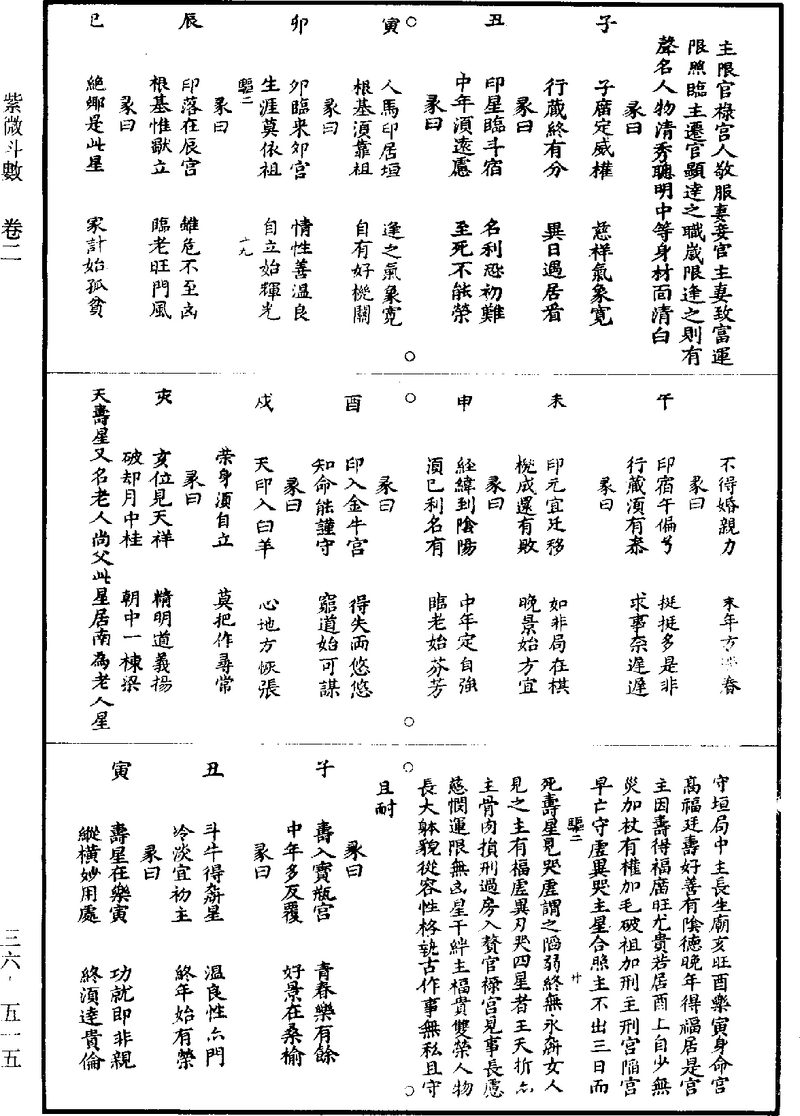 紫微斗數　卷二
三六‧五一五
主限官祿宮人敬服妻妾官主妻致富運
限照臨主遷官顯達之職歲限逢之則有
聲名人物清秀聰明中等身材面清白
彖曰
子　子廣定威權　慈祥氣象寬
行藏終有分　異日過居看
彖曰
丑　印星臨斗宿　名利恐初難
中年須遠慮　至死不能榮
彖曰
寅　人馬印居垣　逢之氣象寬
根基須靠祖　自有好機關
彖曰
卯　夘臨來夘宮　情性善溫良
生涯莫依祖　自立始輝光
驅二　十九
彖曰
辰　印落在辰宮　雖危不至凶
根基惟獨立　臨老旺門風
彖曰
巳　絕鄉是此星　家計始孤貧
不得婚親力　末年方　春
彖曰
午　印宿午偏兮　挺挺多是非
行藏須有泰　求事奈遲遲
彖曰
未　印元宜迁移　如非局在棋
機成還有敗　晚景始方宜
彖曰
申　經緯到陰陽　中年定自強
須巳利名有　臨老始芬芳
彖曰
酉　印入金牛宮　得失两悠悠
知命能謹守　窮道始可謀
彖曰
戌　天印入白羊　心地方恢張
荣身須自立　莫把作尋常
彖曰
亥　亥位見天祥　精明道義揚
破却月中桂　朝中一棟梁
天壽星又名老人尚父此星居南為老人星
守垣局中主長生廟亥旺酉樂寅身命宮
高福廷壽好善有陰德晚年得福居是宮
主因壽得福廣旺尤貴若居酉上自少無
災加杖有權加毛破祖加刑主刑宮陷宮
早亡守虛異哭主星合照主不出三日而
驅二　廿
死壽星見哭虛謂之陷弱終無永齡女人
見之主有福虛異刃哭四星者主夭折亦
主骨肉損刑過房入贅官祿宮見事長慮
慈憫運限無凶星干絆主福貴雙榮人物
長大躰貌從容性格執古作事無私且守
且耐
彖曰
子　壽入寶瓶宮　青春樂有餘
中年多反覆　好景在桑榆
彖曰
丑　斗牛得齡星　溫良性亦門
冷淡宜初主　終年始有榮
彖曰
寅　壽星在樂寅　功就即非親
縱橫妙用處　終須達貴倫